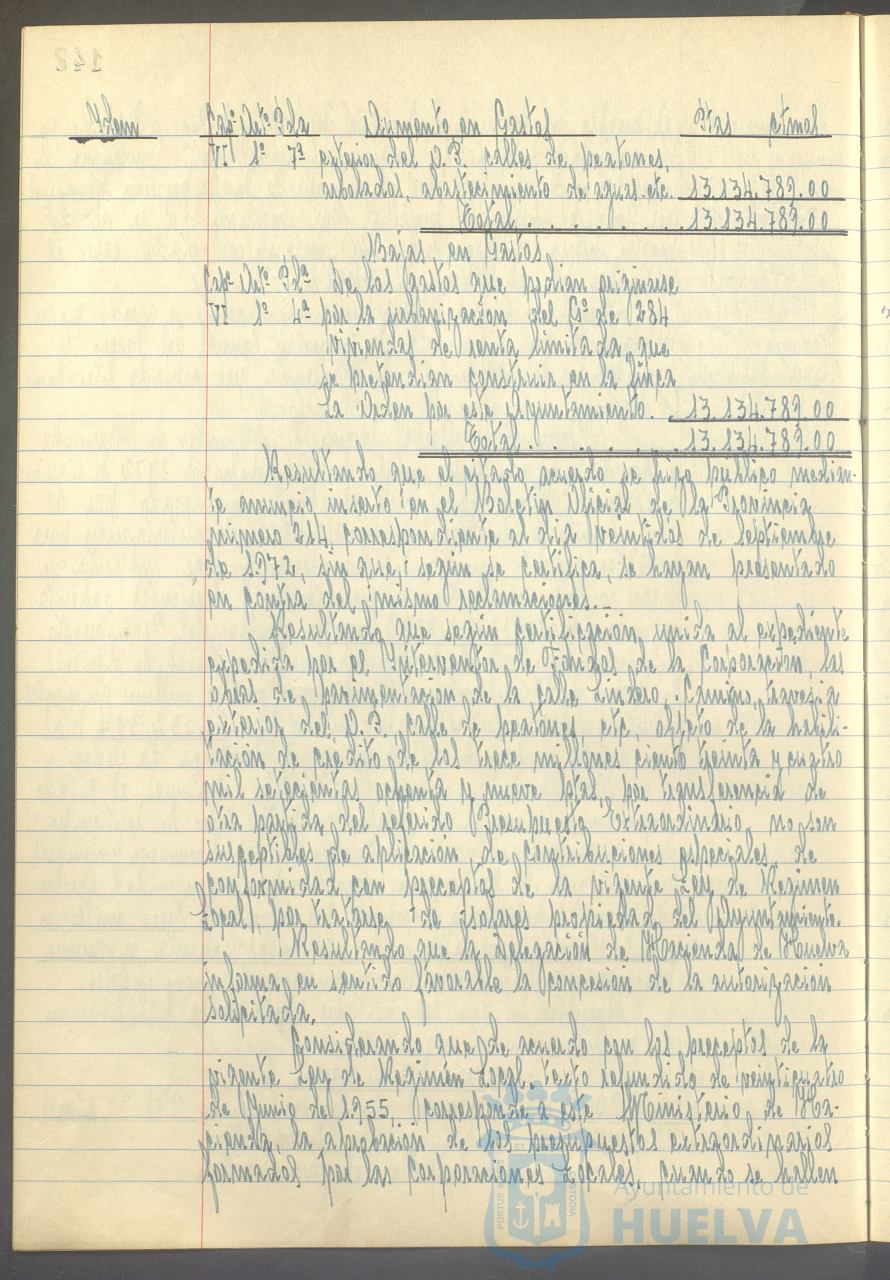 142
Idem Capº Artº Pda Aumento en Gastos Ptas ctmos
VI 1º 7ª exterior del P.P. calles de peatones,
arbolados, abastecimiento de aguas etc. 13.134.789.00
Total 13.134.789.00
Bajas en Gastos
Capº Artº Pdª De los gastos que podian originarse
VI 1º 4ª por la urbanización del Gº de 284
viviendas de renta limitada que
se pretendian construir en la finca
La Orden por este Ayuntamiento. 13.134.789.00
Total 13.134.789.00
Resultando que el citado acuerdo se hizo público median-
te anuncio inserto en el Boletin Oficial de la Provincia
número 214 correspondiente al dia veintidós de Septiembre
de 1.972, sin que, según se certifica, se hayan presentado
en contra del mismo reclamaciones.-
Resultando que según certificación unida al expediente
expedida por el Interventor de Fondos de la Corporación, las
obras de pavimentación de la calle Lindero, Camino, travesia
exterior del P.P. calle de peatones, etc, objeto de la habili-
tación de credito de los trece millones ciento treinta y cuatro
mil setecientas ochenta y nueve ptas, por transferencia de
otra partida del referido Presupuesto Extraordinario, no son
susceptibles de aplicación de contribuciones especiales, de
conformidad con preceptos de la vigente Ley de Régimen
Local, por tratarse de solares propiedad del Ayuntamiento.
Resultando que la Delegación de Hacienda de Huelva
informa en sentido favorable la concesión de la autorización
solicitada.
Considerando que de acuerdo con los preceptos de la
vigente Ley de Régimen Local, texto refundido de veinticuatro
de Junio de 1.955, corresponde a este Ministerio de Ha-
cienda, la aprobación de los presupuestos extraordinarios
formados por las Corporaciones Locales, cuando se hallen
Ayuntamiento de
HUELVA